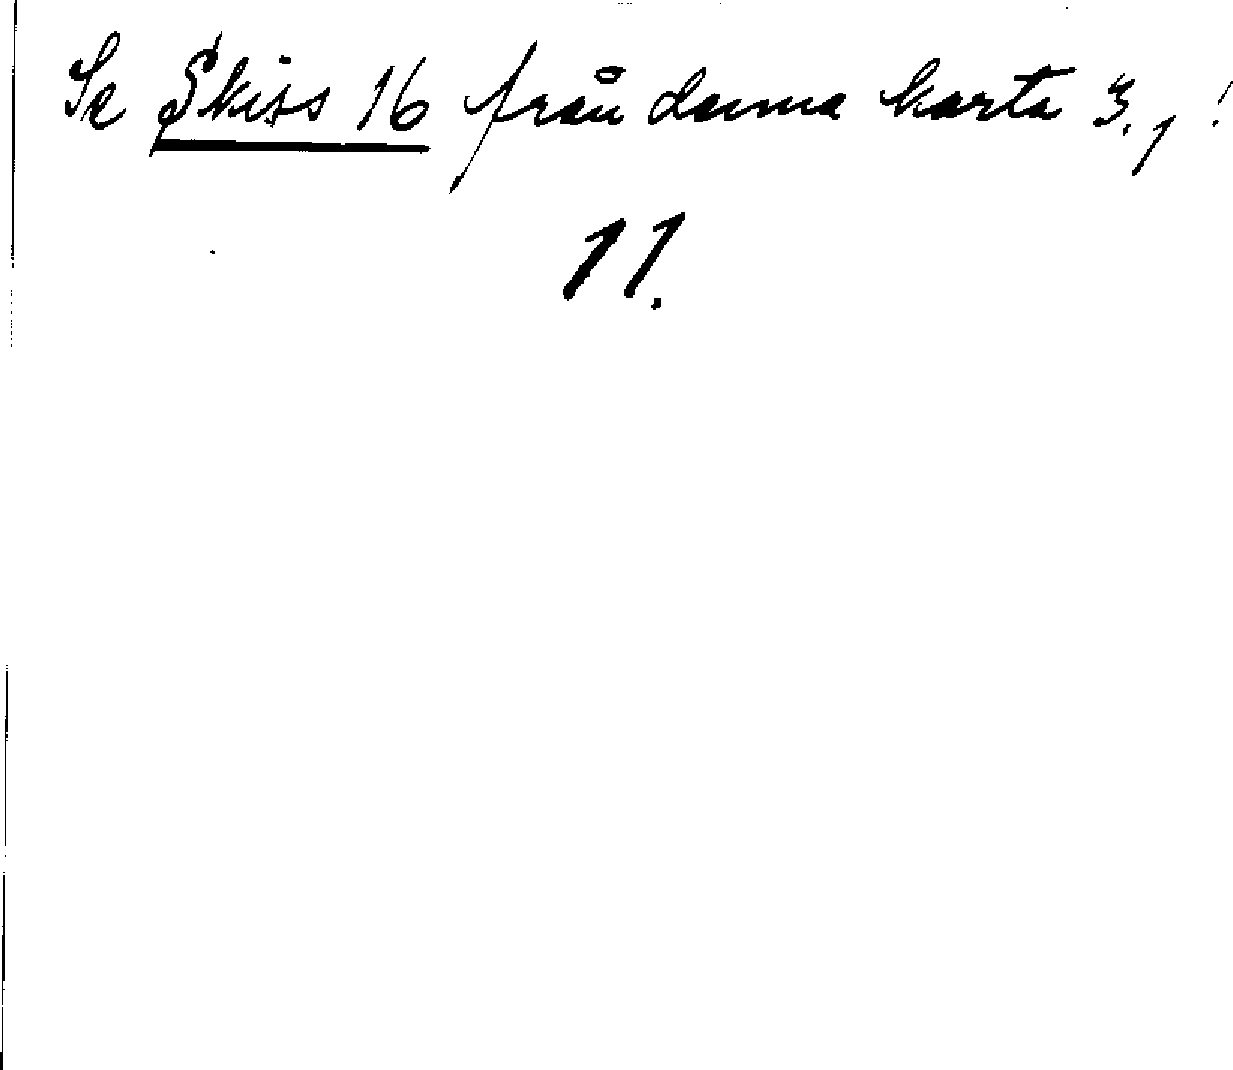 Se Skiss 16 från denna karta 3,1!
11.